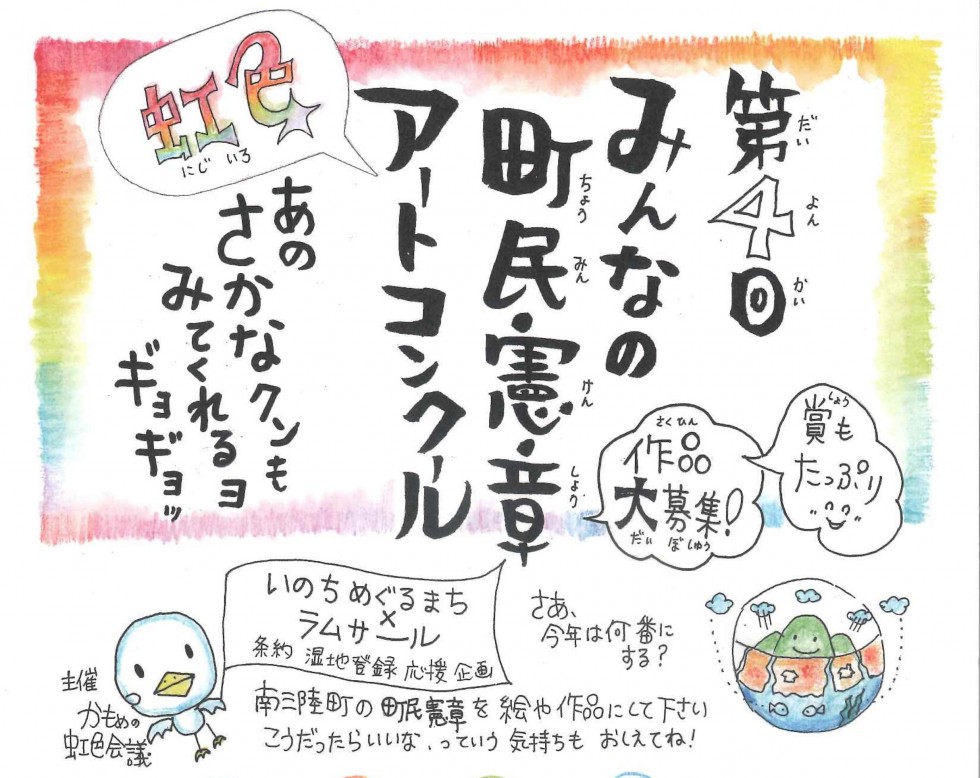 第4回
だい よん かい
みんなの
町民憲章
ちょう みん けん しょう
アートコンクール
虹色
にじ いろ
あの
さかなクンも
みてくれるヨ
ギョギョッ
賞も
しょう
たっぷり
作品
さくひん
大募集!
だい ぼしゅう
いのちめぐるまち
×
ラムサール
条約 湿地登録 応援 企画
さあ、
今年は何番に
する?
主催
かもめの
虹色会議
南三陸町の町民憲章を絵や作品にして下さい
こうだったらいいな、っていう気持ちもおしえてね!